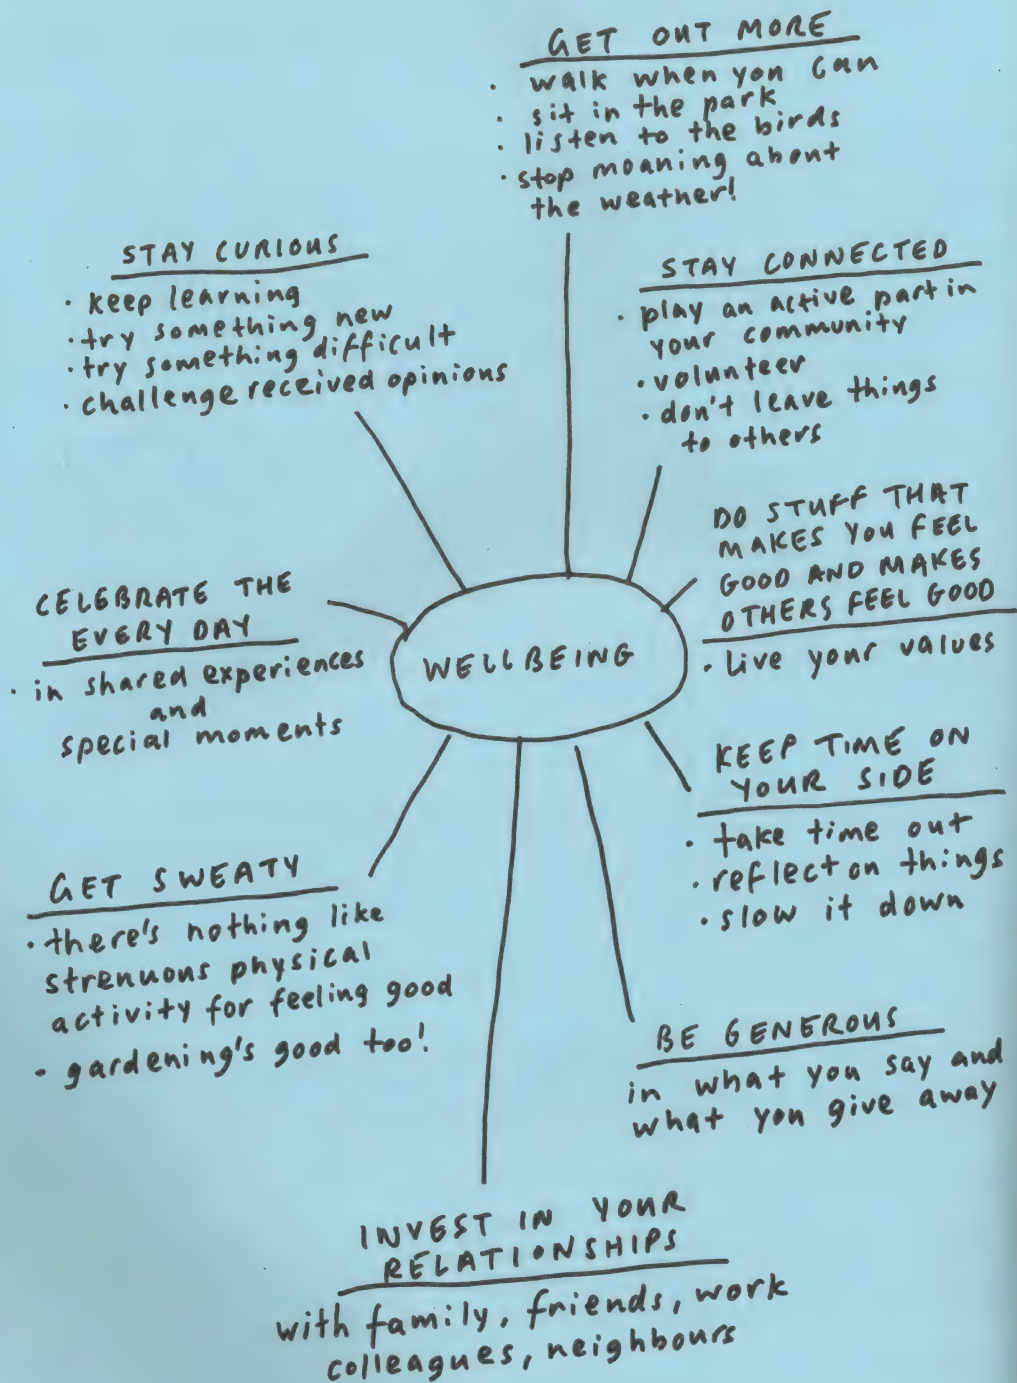 GET OUT MORE
· walk when you can
· sit in the park
· listen to the birds
· stop moaning about
the weather!
STAY CURIOUS
· keep learning
· try something new
· try something difficult
· challenge received opinions
STAY CONNECTED
· play an active part in
your community
· volunteer
· don't leave things
to others
DO STUFF THAT
MAKES YOU FEEL
GOOD AND MAKES
OTHERS FEEL GOOD
· live your values
CELEBRATE THE
EVERY DAY
· in shared experiences
and
special moments
WELLBEING
KEEP TIME ON
YOUR SIDE
· take time out
· reflect on things
· slow it down
GET SWEATY
· there's nothing like
strenuous physical
activity for feeling good
· gardening's good too!
BE GENEROUS
in what you say and
what you give away
INVEST IN YOUR
RELATIONSHIPS
with family, friends, work
colleagues, neighbours